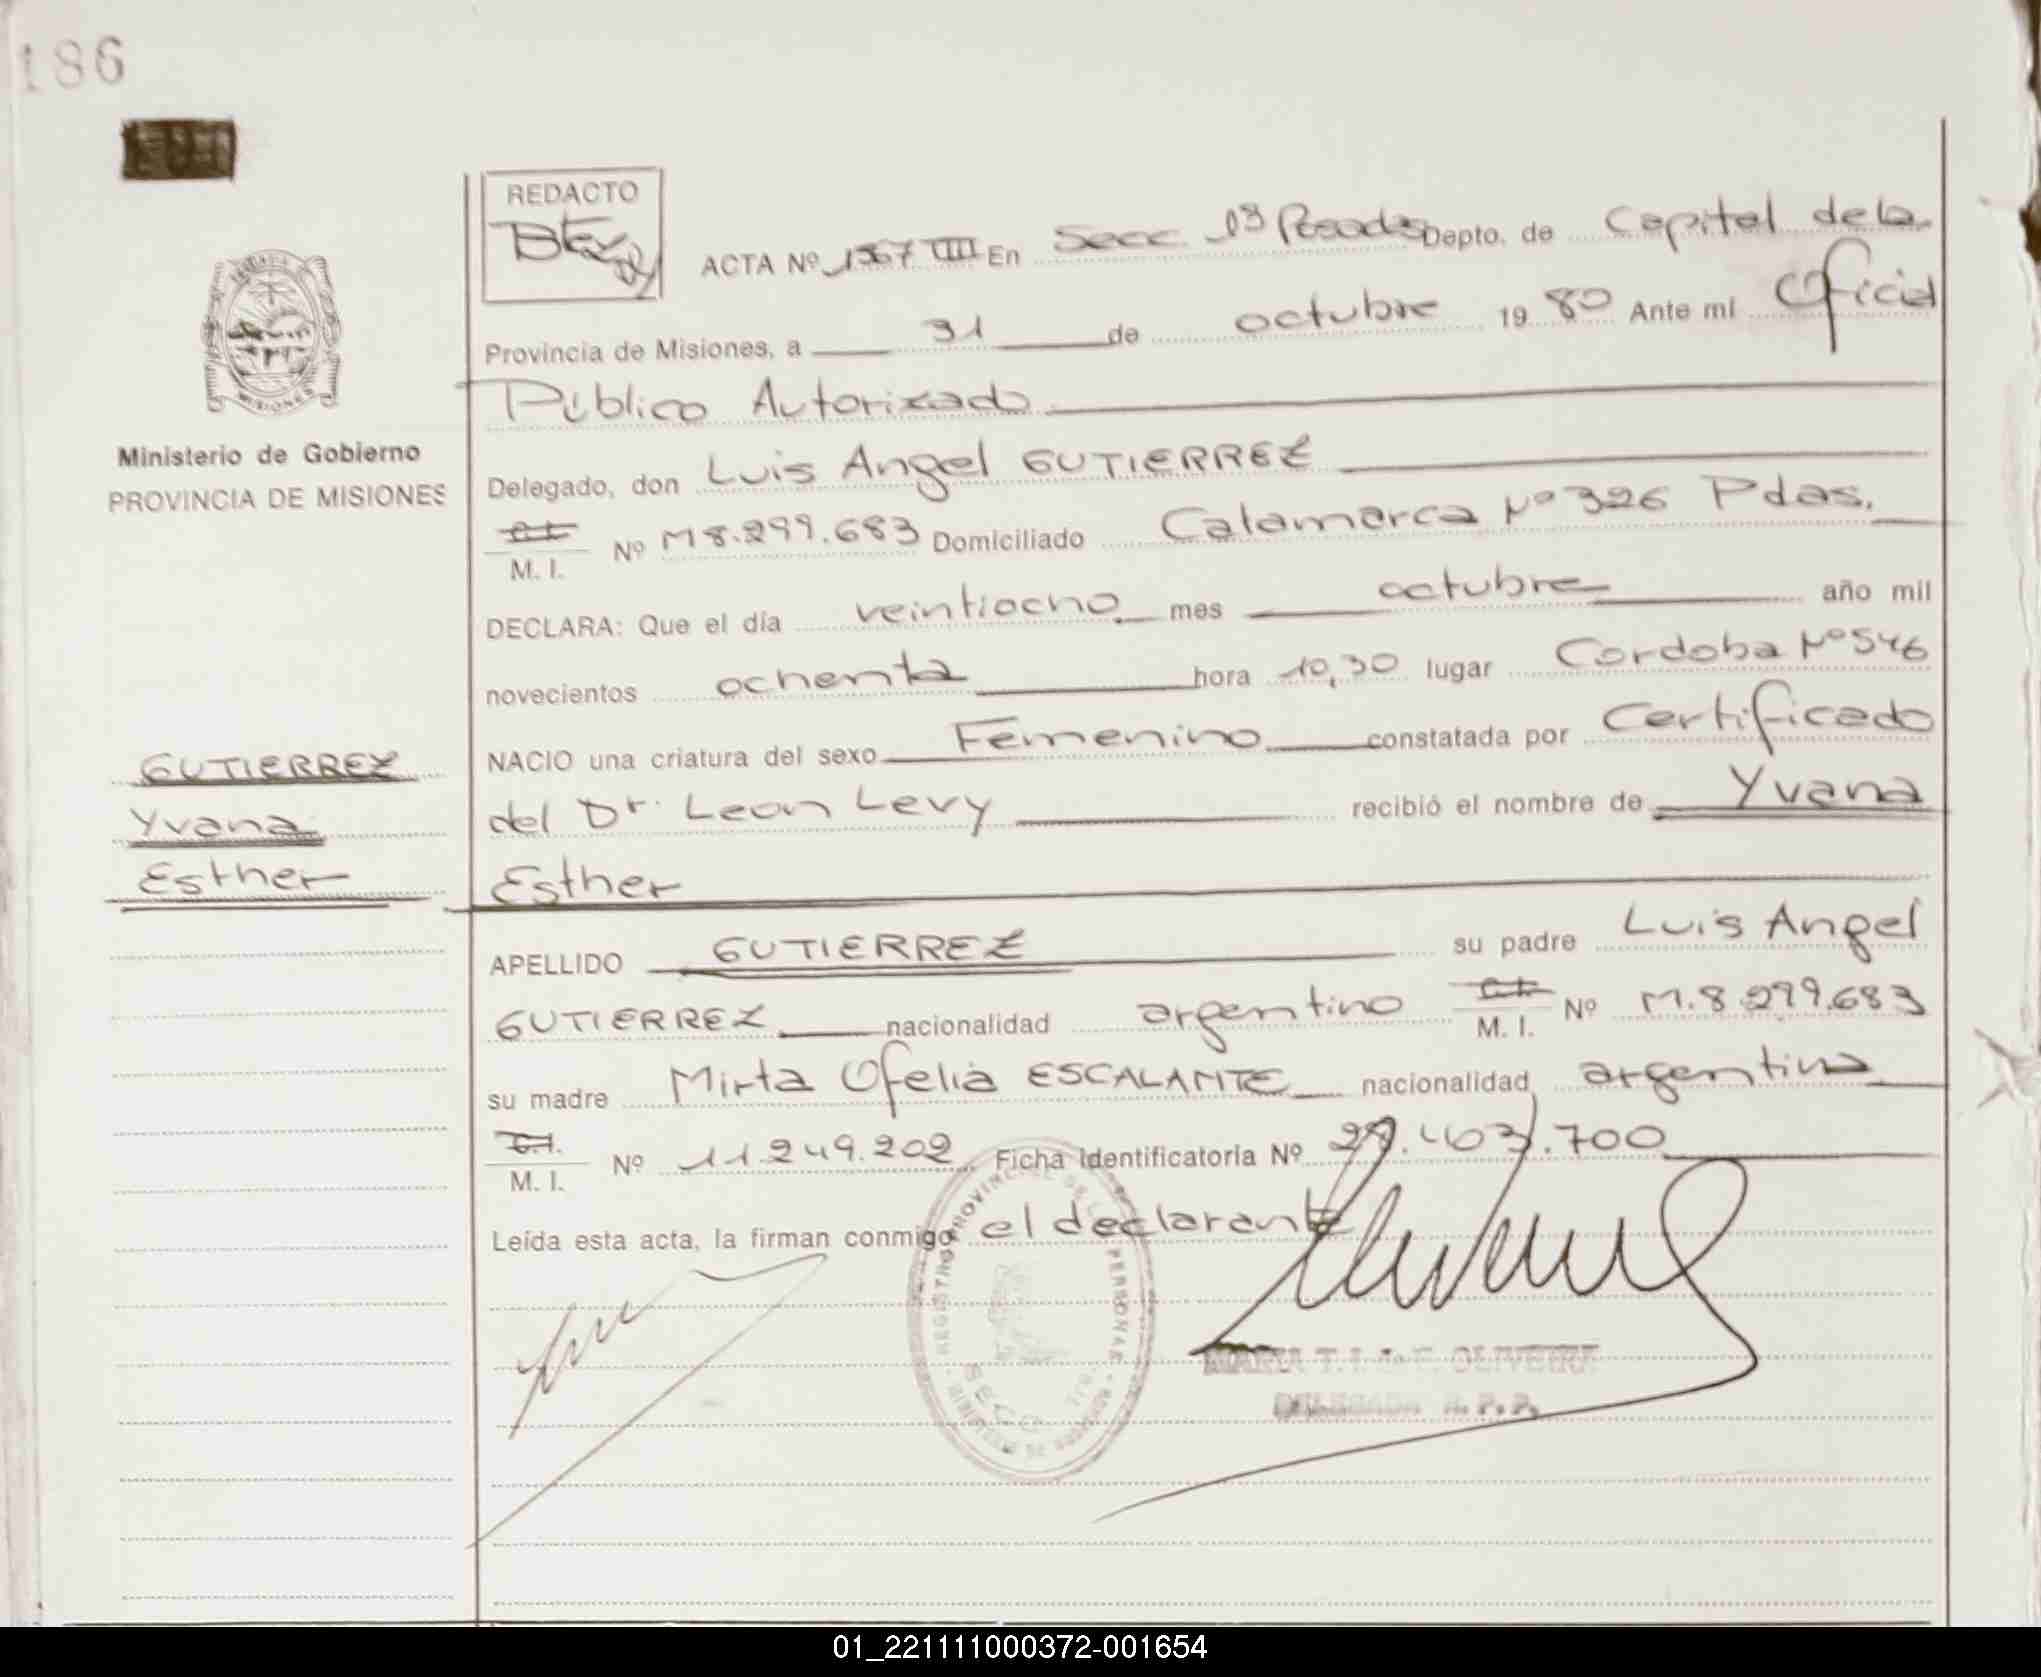 186
REDACTO
ACTA Nº 1367 VIII En Secc. 1ª Posadas Depto. de Capital de la
Provincia de Misiones, a 31 de octubre 19 80 Ante mí Oficial
Público Autorizado
MISIONES
Ministerio de Gobierno
PROVINCIA DE MISIONES
Delegado, don Luis Angel GUTIERREZ
M. I. Nº M 8.299.683 Domiciliado Catamarca Nº 326 Pdas.
DECLARA: Que el día veintiocho mes octubre año mil
novecientos ochenta hora 10,30 lugar Cordoba Nº 546
NACIO una criatura del sexo Femenino constatada por Certificado
del Dr. Leon Levy recibió el nombre de Yvana
Esther
GUTIERREZ
Yvana
Esther
APELLIDO GUTIERREZ su padre Luis Angel
GUTIERREZ nacionalidad argentino M. I. Nº M.8.299.683
su madre Mirta Ofelia ESCALANTE nacionalidad argentina
M. I. Nº 11.249.202 Ficha Identificatoria Nº 29.403.700
Leída esta acta, la firman conmigo el declarante
REGISTRO PROVINCIAL DE LAS PERSONAS
MARIA T. I. de F. OLIVEIRA
DELEGADA R. P. P.
01_221111000372-001654